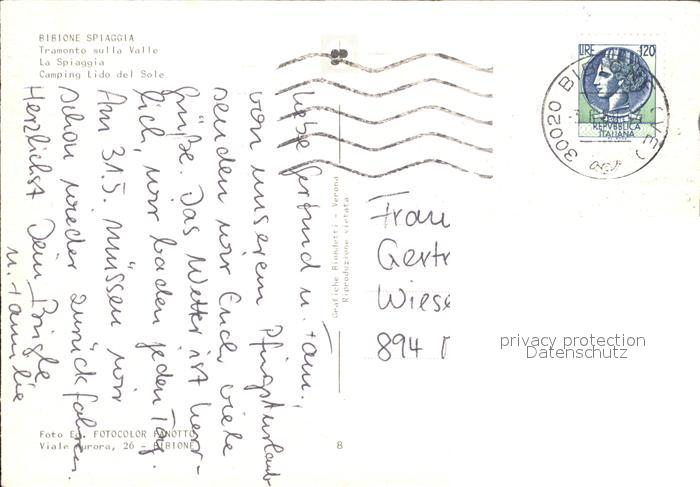 BIBIONE SPIAGGIA
Tramonto sulla Valle
La Spiaggia
Camping Lido del Sole
Liebe Gertrud u. Fam.!
von unserem Pfingsturlaub
senden wir Euch viele
Grüße. Das Wetter ist herr-
lich, wir baden jeden Tag.
Am 31.5. müssen wir
schon wieder zurückfahren.
Herzlichst Deine
u. Familie
Grafiche Biondetti - Verona
Riproduzione vietata
LIRE 120
REPVBBLICA
ITALIANA
30020 BIB VE)
Frau
Gertr
Wiese
894
privacy protection
Datenschutz
Foto Ed. FOTOCOLOR ZANOTTO
Viale Aurora, 26 - BIBIONE
8